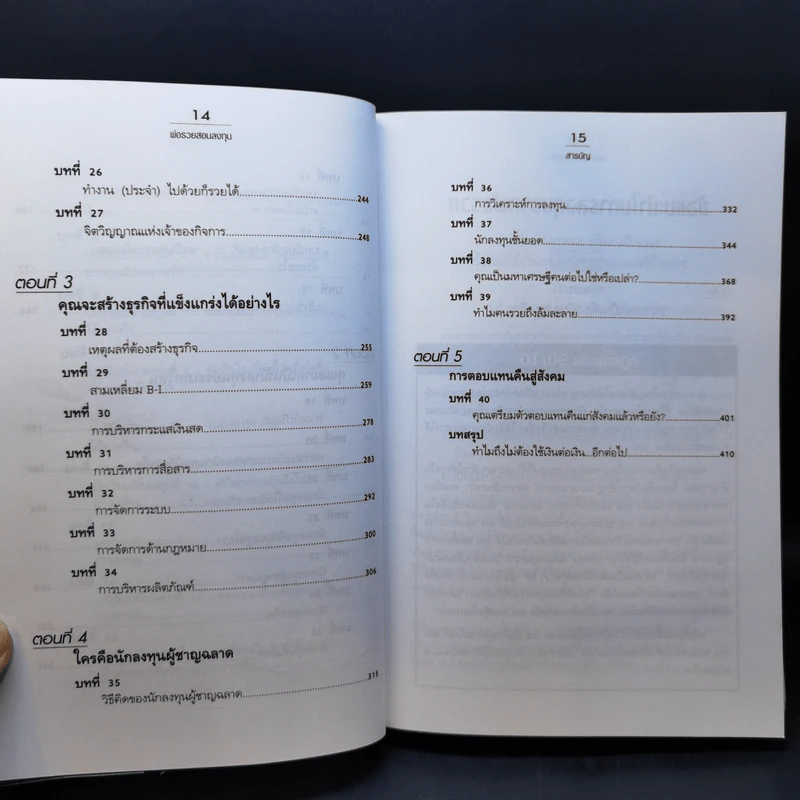 14
พ่อรวยสอนลงทุน
บทที่ 26
ทำงาน (ประจำ) ไปด้วยก็รวยได้ 244
บทที่ 27
จิตวิญญาณแห่งเจ้าของกิจการ 248
ตอนที่ 3
คุณจะสร้างธุรกิจที่แข็งแกร่งได้อย่างไร
บทที่ 28
เหตุผลที่ต้องสร้างธุรกิจ 255
บทที่ 29
สามเหลี่ยม B-I 259
บทที่ 30
การบริหารกระแสเงินสด 278
บทที่ 31
การบริหารการสื่อสาร 283
บทที่ 32
การจัดการระบบ 292
บทที่ 33
การจัดการด้านกฎหมาย 300
บทที่ 34
การบริหารผลิตภัณฑ์ 306
ตอนที่ 4
ใครคือนักลงทุนผู้ชาญฉลาด
บทที่ 35
วิธีคิดของนักลงทุนผู้ชาญฉลาด 313
15
สารบัญ
บทที่ 36
การวิเคราะห์การลงทุน 332
บทที่ 37
นักลงทุนชั้นยอด 344
บทที่ 38
คุณเป็นมหาเศรษฐีคนต่อไปใช่หรือเปล่า? 368
บทที่ 39
ทำไมคนรวยถึงล้มละลาย 392
ตอนที่ 5
การตอบแทนคืนสู่สังคม
บทที่ 40
คุณเตรียมตัวตอบแทนคืนแก่สังคมแล้วหรือยัง? 401
บทสรุป
ทำไมถึงไม่ต้องใช้เงินต่อเงิน...อีกต่อไป 410